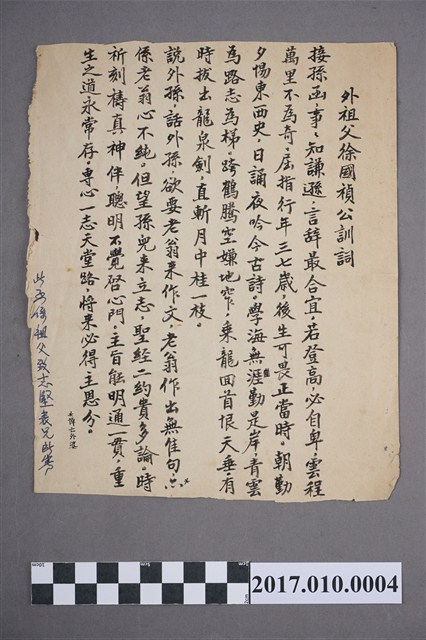 外祖父徐國禎公訓詞
接孫函事,知謙遜,言辭最合宜,若登高必自卑,雲程
萬里不為奇,屈指行年三七歲,後生可畏正當時。朝勤
夕惕東西史,日誦夜吟今古詩。學海無涯勤是岸,青雲
為路志為梯,跨鶴騰空嫌地窄,乘龍回首恨天垂,有
時拔出龍泉劍,直斬月中桂一枝。
說外孫,話外孫,欲要老翁來作文,老翁作出無佳句,
係老翁心不純。但望孫兒來立志,聖經二約貴多論。時
祈刻禱真神伴,聰明不覺啓心門。主旨能明通一貫,重
生之道永常存。專心一志天堂路,將來必得主恩分。
此為係祖父致志堅表兄
2017.010.0004